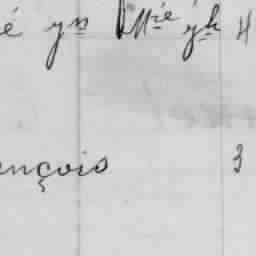 é yn Mie yh 4
ençois 3